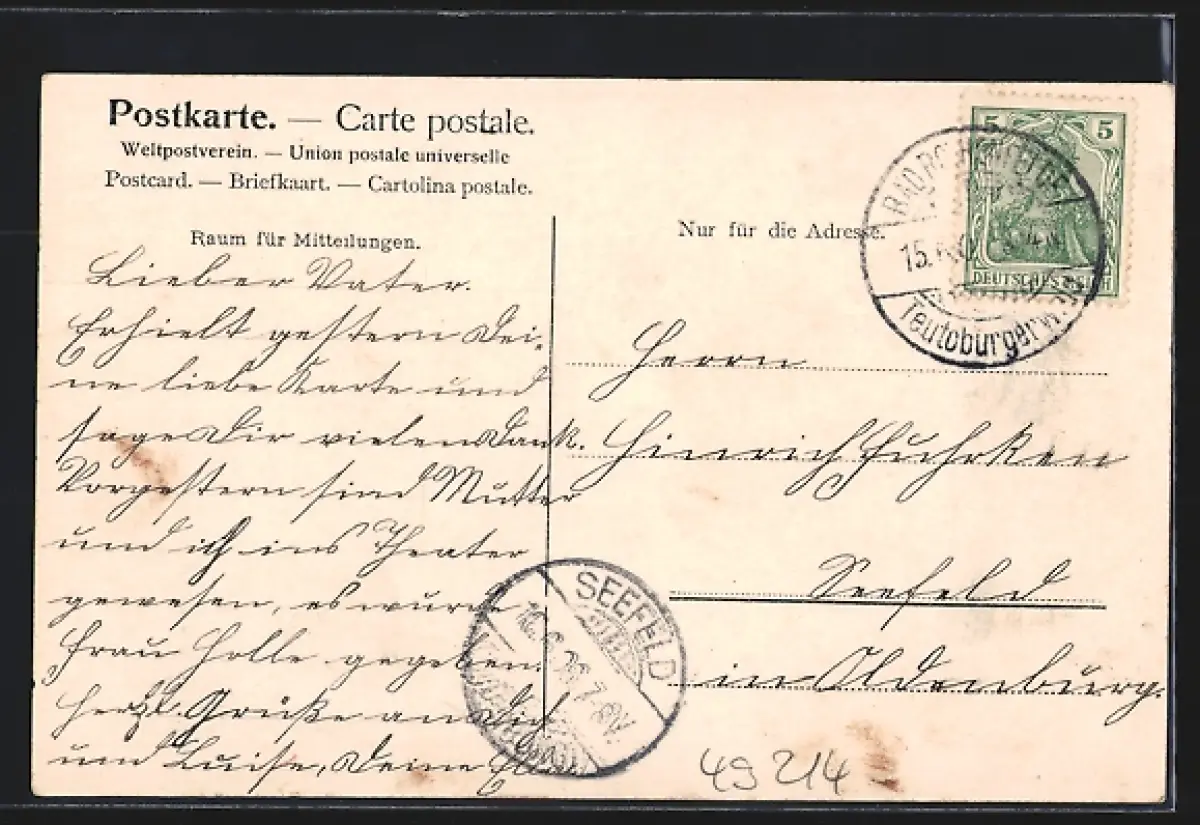 Postkarte. — Carte postale.
Weltpostverein. — Union postale universelle
Postcard. — Briefkaart. — Cartolina postale.
Raum für Mitteilungen.
Lieber Vater.
Erhielt gestern Dei-
ne liebe Karte und
sage Dir vielen Dank.
Vorgestern sind Mutter
und ich ins Theater
gewesen, es wurde
Frau Holle gegeben.
Herzl. Grüße an Dich
und Luise, Deine
Nur für die Adresse.
5 5
DEUTSCHES REICH
15.
Teutoburger W.
Herrn
Hinrich Fuhrken
Seefeld
in Oldenburg.
SEEFELD
16.6. 7-8V.
49214